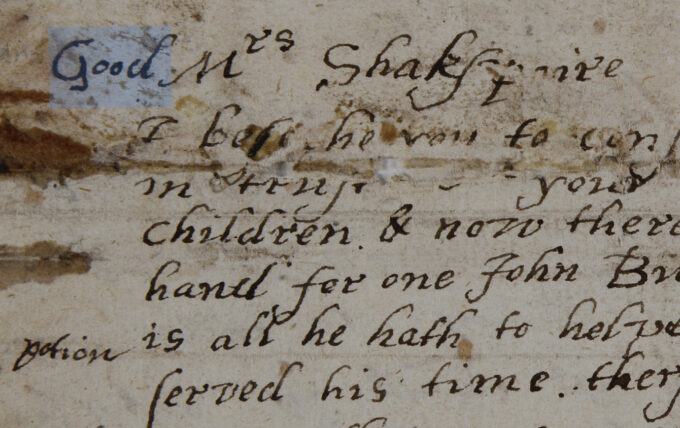 Good Mrs Shakspaire
I beseche you to
in & trust your
Children & now there
hand for one John
potion is all he hath to helpe
served his time